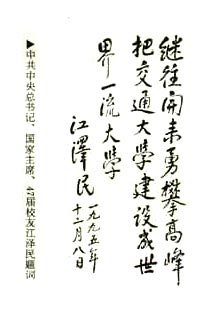 继往开来勇攀高峰
把交通大学建设成世
界一流大学
江泽民
一九九五年
十二月八日
▶中共中央总书记、国家主席、47届校友江泽民题词